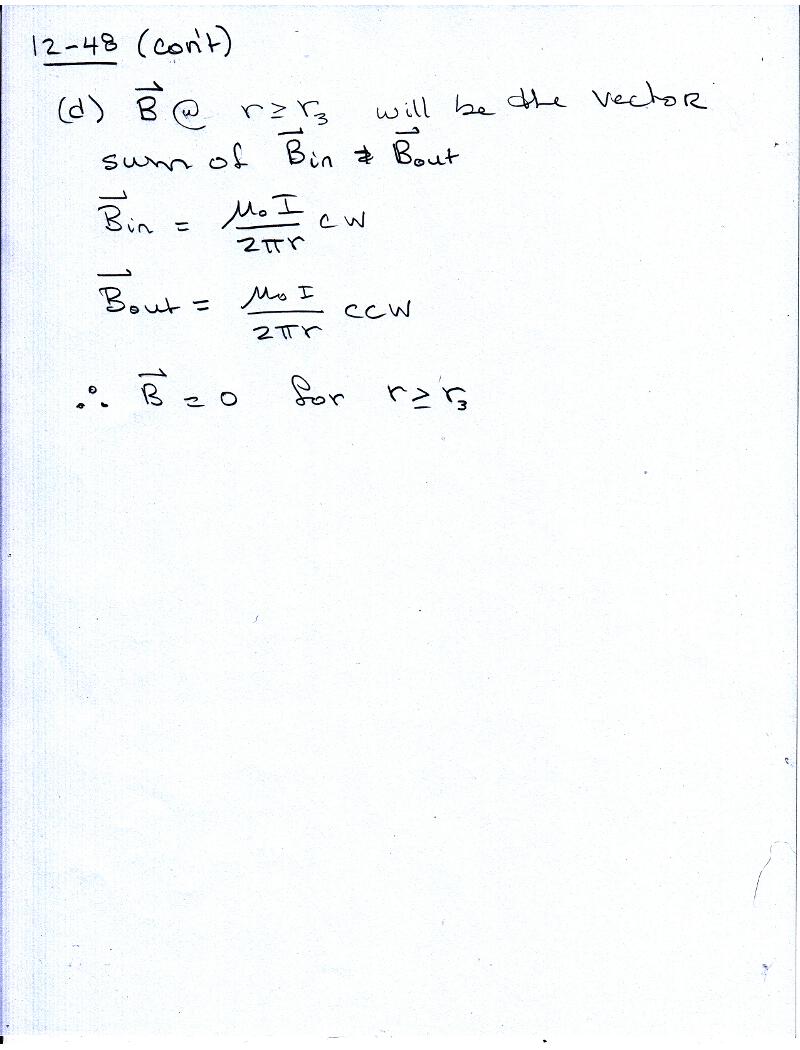 12-48 (con't)
(d) B⃗ @ r ≥ r₃ will be the vector
sum of B⃗in & B⃗out
B⃗in = μ₀I / 2πr cw
B⃗out = μ₀I / 2πr ccw
∴ B⃗ = 0 for r ≥ r₃